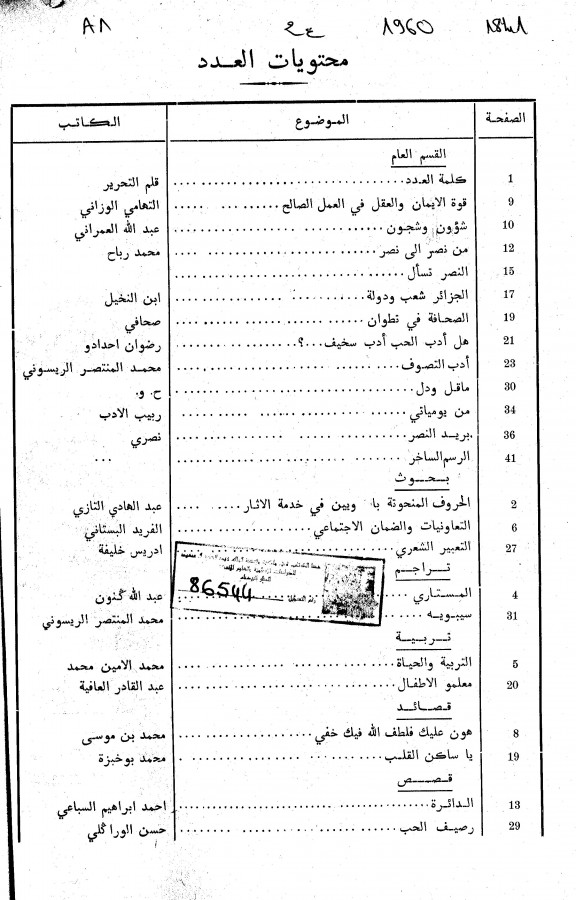 A1 ع2 1960 1841
محتويات العـدد
الصفحة الموضوع الكاتب
القسم العام
1 كلمة العدد قلم التحرير
9 قوة الايمان والعقل في العمل الصالح التهامي الوزاني
10 شؤون وشجون عبد الله العمراني
12 من نصر الى نصر محمد رباح
15 النصر تسأل
17 الجزائر شعب ودولة ابن النخيل
19 الصحافة في تطوان صحافي
21 هل أدب الحب أدب سخيف...؟ رضوان احدادو
23 أدب التصوف محمد المنتصر الريسوني
30 ماقل ودل ح. و.
34 من يومياتي ربيب الادب
36 بريد النصر نصري
41 الرسم الساخر ...
بـحـوث
2 الحروف المنحوتة با وبين في خدمة الاثار عبد الهادي التازي
6 التعاونيات والضمان الاجتماعي الفريد البستاني
27 التعبير الشعري ادريس خليفة
تـراجـم
86544
4 المستاري عبد الله گنون
31 سيبويه محمد المنتصر الريسوني
تـربـيـة
5 التربية والحياة محمد الامين محمد
20 معلمو الاطفال عبد القادر العافية
قـصـائـد
8 هون عليك فلطف الله فيك خفي محمد بن موسى
19 يا ساكن القلب محمد بوخبزة
قـصـص
13 الدائرة احمد ابراهيم السباعي
29 رصيف الحب حسن الوراگلي